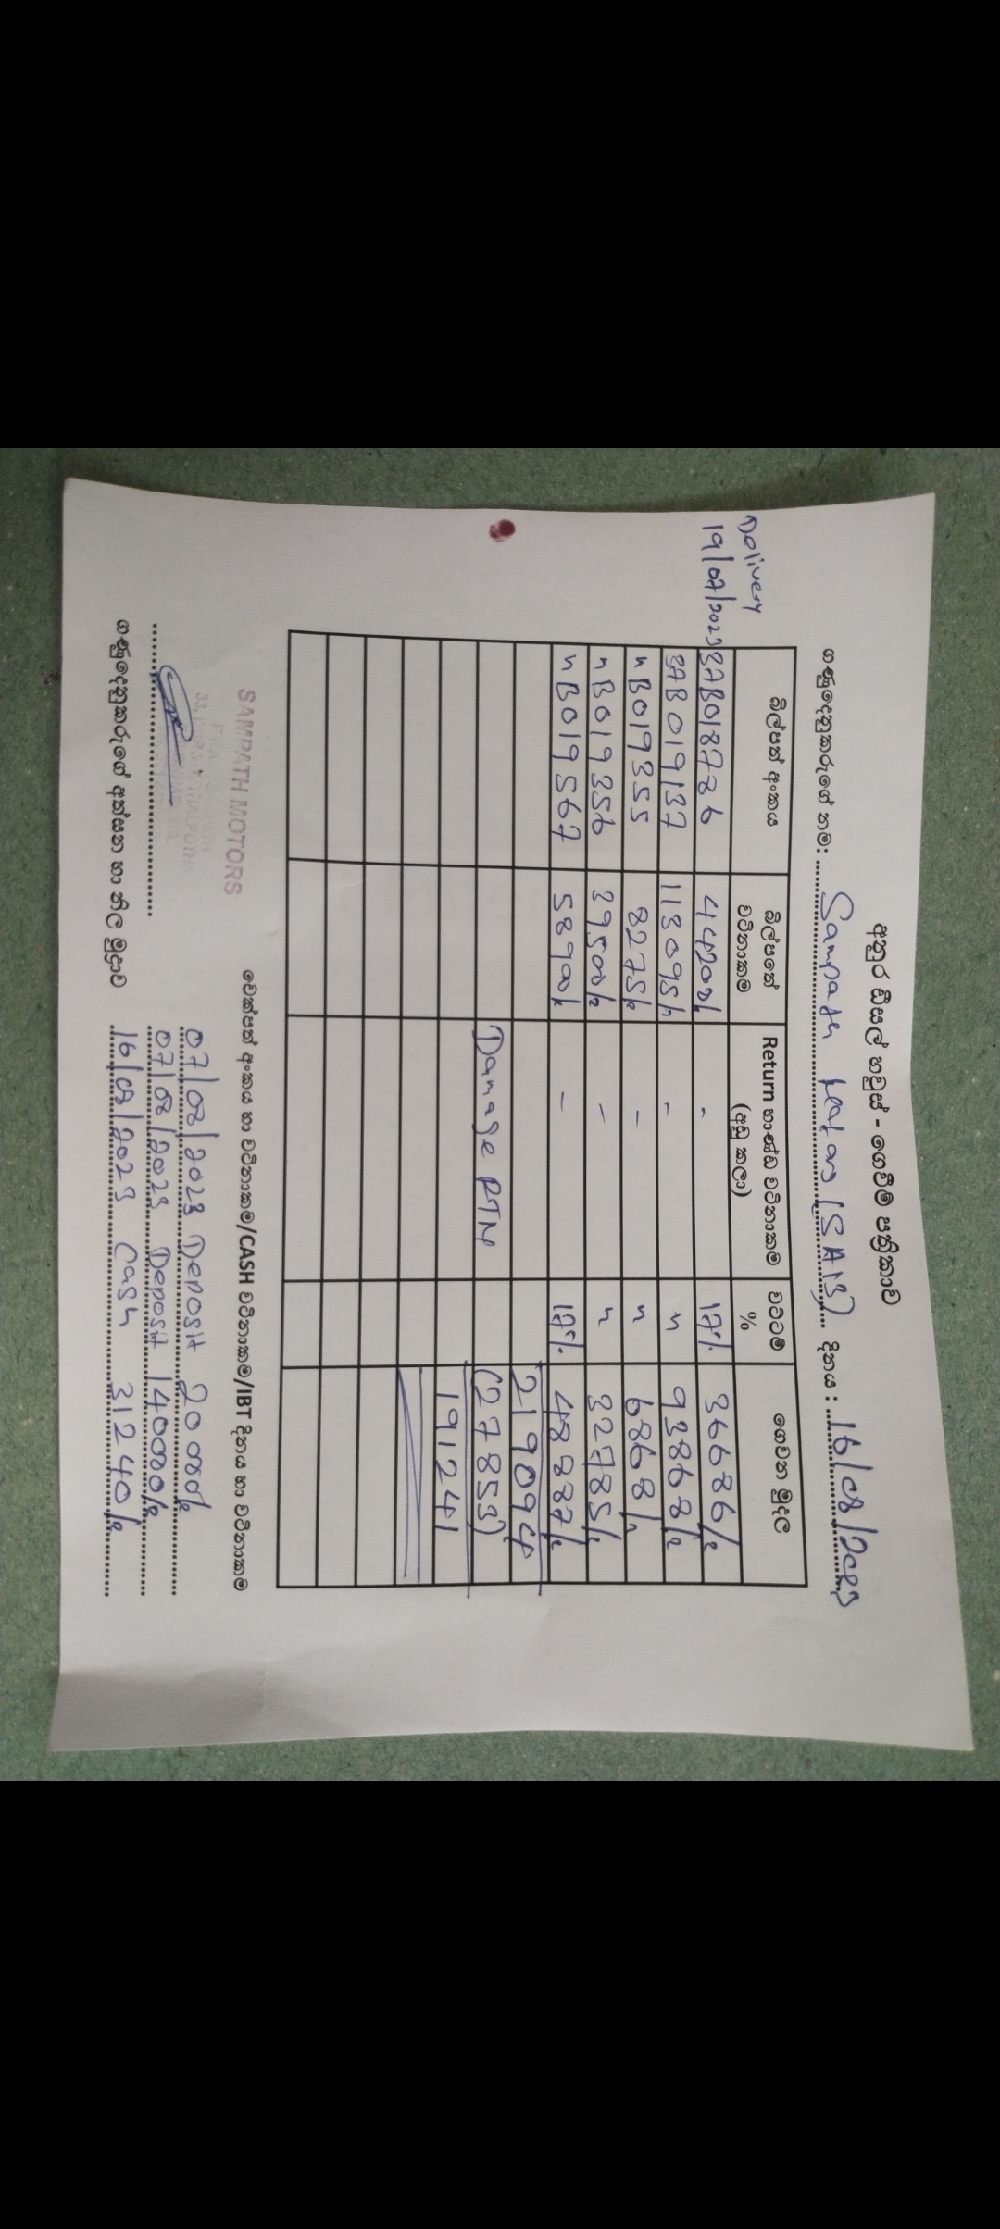 අනුර ඩීසල් හවුස් - ගෙවීම් පත්‍රිකාව
ගණුදෙනුකරුගේ නම: Sampath Motors (SAB) දිනය : 16/08/2023
බිල්පත් අංකය බිල්පතේ වටිනාකම Return භාණ්ඩ වටිනාකම (අඩු කලා) වට්ටම් % ගෙවන මුදල
Delivery
19/07/2023 37B018786 44200/- - 17% 36686/=
37B019137 113095/- - " 93868/=
" B019355 8275/= - " 6868/-
" B019356 39500/= - " 32785/=
" B019567 58900/= - 17% 48887/=
219094
Damage RTN (27853)
191241
චෙක්පත් අංකය හා වටිනාකම/CASH වටිනාකම/IBT දිනය හා වටිනාකම
SAMPATH MOTORS
07/08/2023 Deposit 20000/=
07/08/2023 Deposit 140000/=
16/08/2023 Cash 31240/=
ගණුදෙනුකරුගේ අත්සන හා නිල මුද්‍රාව